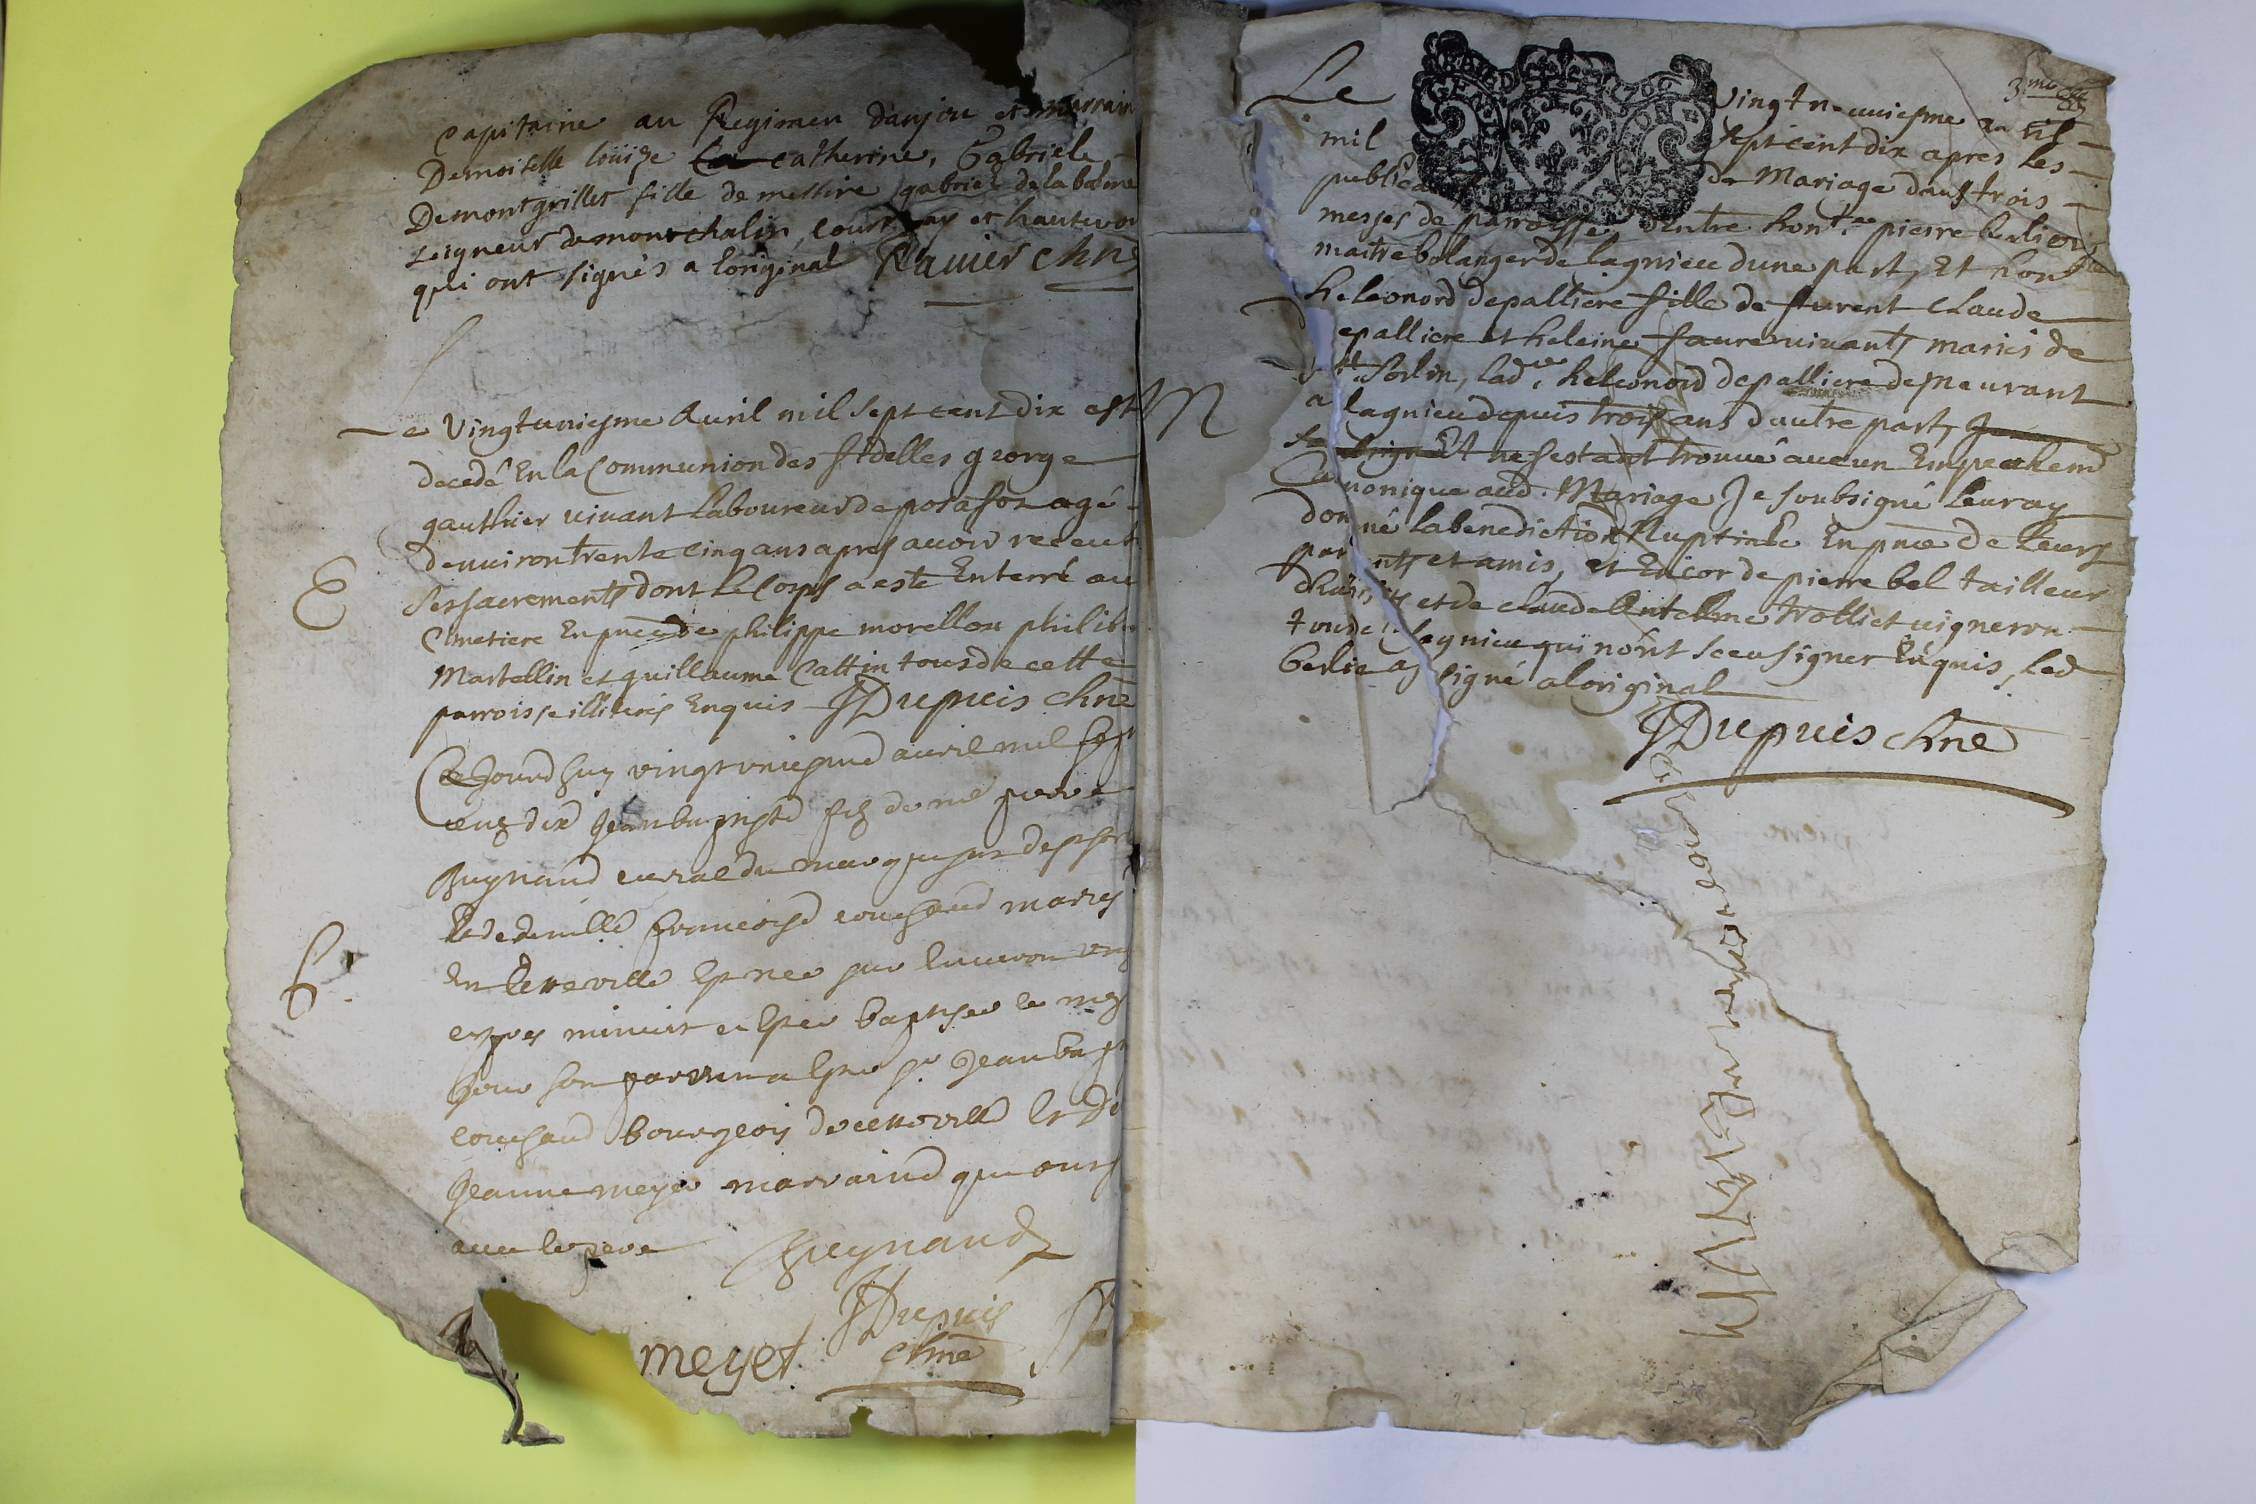 capitaine au Regimen danjou et marrain
Demoiselle loüize catherine, Gabriele
Demontgrillet fille de messire gabriel de la balme
seigneur de montchalin, cour et hautevo
qui ont signés a loriginal Ravier chne
e Vingtuniesme Avril mil sept cent dix est
decedé En la Communion des fidelles george
gauthier vivant Laboureur de posafol agé
denviron trente cinq ans apres avoir receut
E
ses sacrements dont le Corps a esté Enterré au
Cimetiere En pnce de philippe morellon philib
Martellin et guillaume Cattin tous de cette
parroisse illiterés Enquis JDupuis chne
Cejourdhuy vingtuniesme avril mil sep
cens dix Jean baptiste filz de me pierre
Buynand du marquisat de
Et de demlle francoise couchand maries
En cette ville Est nee sur Lenviron un
b
apres minuit et Este baptisee le me
Jour son parrain a Esté Sr Jean bapt
couchand bourgeois de cette ville Et D
Jeanne meyet marraine qui ont s
avec le pere Buynand
JDupuis
meyet chne
3me
Le Vingt neuviesme avril
mil sept cent dix apres les
publica de Mariage dans trois
messes de parroisse, Entre hont. pierre berlie
maitre bolanger de lagnieu dune part, Et hon
M
heleonord depalliere fille de fturent Claude
Depalliere et heleine faure vivants maries de
St Sorlin, lad. heleonord depalliere demeurant
a lagnieu depuis trois ans dautre part,
Et ne sestant trouvé aucun Empechemt
Canonique aud. Mariage Je soubsigné Leur ay
donné la benediction Nuptiale En pnce de Leurs
parents et amis, et Encor de pierre bel tailleur
dhabits et de claude Antelme trolliet vigneron
tous de lagnieu qui nont sceu signer Enquis, led
berlie a signé a loriginal
JDupuis chne